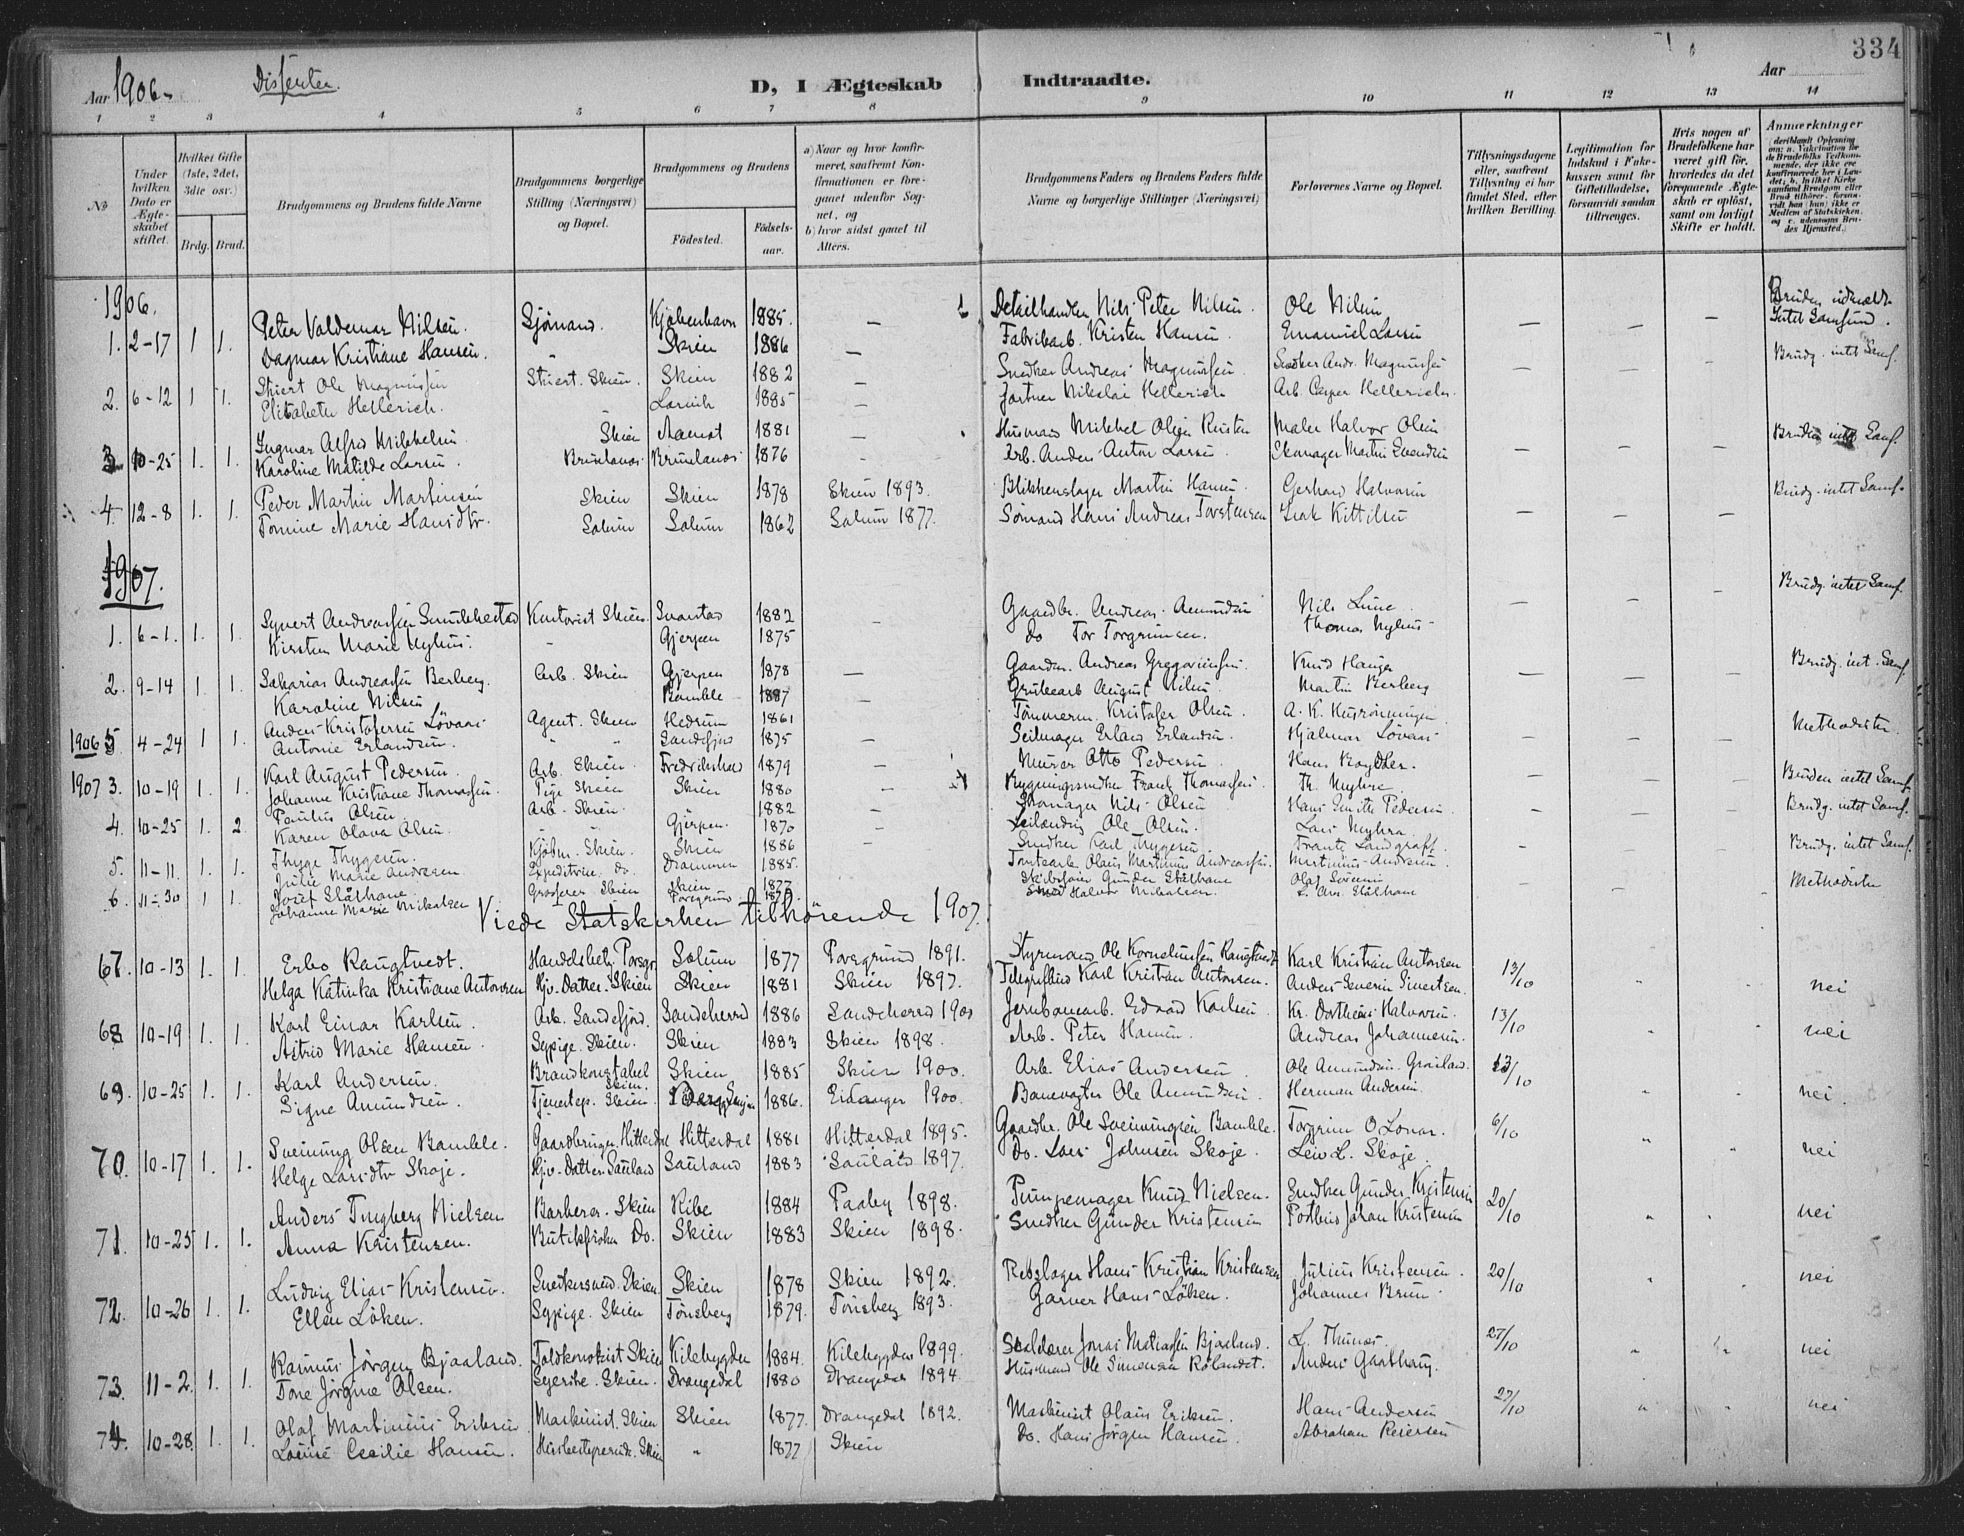 334
Aar 1906. Dissenter. D, I Ægteskab Indtraadte. Aar
1 2 3 4 5 6 7 8 9 10 11 12 13 14
No
Under hvilken Dato er Ægteskabet stiftet.
Hvilket Gifte (1ste, 2det, 3die osv.)
Brdg. Brud.
Brudgommens og Brudens fulde Navne
Brudgommens borgerlige Stilling (Næringsvei) og Bopæl.
Brudgommens og Brudens
Fødested. Fødselsaar.
a) Naar og hvor konfirmeret, saafremt Konfirmationen er foregaaet udenfor Sognet, og
b) hvor sidst gaaet til Alters.
Brudgommens Faders og Brudens Faders fulde Navne og borgerlige Stillinger (Næringsvei)
Forlovernes Navne og Bopæl.
Tillysningsdagene eller, saafremt Tillysning ei har fundet Sted, efter hvilken Bevilling.
Legitimation for Indskud i Enkekassen samt for Giftetilladelse, forsaavidt saadan tiltrænges.
Hvis nogen af Brudefolkene har været gift før, hvorledes da det foregaaende Ægteskab er opløst, samt om lovligt Skifte er holdt.
Anmærkninger
1906.
1. 2-17 1 1. Peter Valdemar Nilsen. Sjømand. Kjøbenhavn 1885. — Detailhandler Nils Peter Nilsen. Ole Nilsen — — — Bruden
Dagmar Kristiane Hansen. " Skien 1886 — Fabrikarb. Kristen Hansen Emanuel Larsen intet Samfund.
2. 6-12 1 1. Ole Magnussen Skien. Skien 1882 — Snedker Andreas Magnussen Snedker Andr. Magnussen — — — Brudg. intet Samf.
Elisabeth Hellerich. " Larvik 1885 — Gartner Nikolai Hellerich Arb. Casper Hellerich
3 10-25 1. 1. Ingmar Alfred Mikkelsen Skien 1881 — Husmand Mikkel Olsen Maler Halvor Olsen — — — Bruden intet Samf.
Karoline Matilde Larsen. Brunlanes Brunlanes 1876 — Arb. Anders Anton Larsen. Skomager Martin
4 12-8 1. 1. Peder Martin Martinsen Skien Skien 1878 Skien 1893. Blikkenslager Martin Hansen. Gerhard Halvorsen — — — Brudg. intet Samf.
Tomine Marie Hansdtr. Solum Solum 1862 Solum 1877. Sømand Hans Andreas Torstensen Isak Kittilsen
1907.
1. 6-1. 1. 1. Syvert Andreassen Kontorist Skien Svarstad 1882 — Gaardbr. Andreas Amundsen Nils Lune — — — Brudg. intet Samf.
Kirsten Marie Nyhus. " Gjerpen 1875 Do Tor Torgrimsen. Thomas Nyhus
2. 9-14 1. 1. Sakarias Andreassen Berberg. Arb. Skien Gjerpen 1878 — Gaardm. Andreas Gregoriussen. Knud Hauger — — — Brudg. int. Samf.
Karoline Nilsen Bamble 1887 Grubearb August Nilsen Martin Berberg
1906 5 4-24 1 1. Anders Kristofersen Løvaas Agent. Skien Hedrum 1861 — Tømmerm. Kristofer Olsen. A. K. — — — Methodister
Antonie Erlandsen. " " Sandefjord 1875 Seilmager Erland Erlandsen. Hjalmar Løvaas
1907 3. 10-19 1. 1. Karl August Pedersen. Arb. Skien Fredrikstad 1879 — Murer Otto Pedersen Hans — — — Bruden intet Samf.
Johanne Kristiane Thomassen. Pige Skien Skien 1880 — Bygningssnedker Frank Thomassen. Th. Myhre.
4. 10-25 1. 2 Paulus Olsen Arb. Skien. " 1882 — Skomager Nils Olsen Hans Pedersen — — — Brudg. intet Samf.
Karen Olava Olsen. " " Gjerpen. 1870 — Leilænding Ole Olsen. Lars Myhra.
5. 11-11. 1. 1. Thyge Thygesen. Kjøbm. Skien. Skien 1886 Snedker Karl Thygesen. Frantz Landgraff. — — — Brudg. intet Samf.
Julie Marie Andresen Expeditrice Do. Drammen 1885. Tomtearb. Olaus Martinius Andreassen. Martinius Andresen
6. 11-30 1 1. Josef Stålhane Grosserer Skien Skien 1877 Gunder Stålhane Olaf Sørensen — — — Methodister
Johanne Marie Mikalsen Porsgrund 1875. Halvor Mikalsen. Stålhane
Viede Statskirken tilhørende 1907.
67. 10-13 1. 1. Erbo Raugtvedt. Handelsbetj. Porsgr. Solum 1877 Porsgrund 1891. Styrmand Ole Korneliussen Raugtvedt Karl Kristian Antonsen 13/10 " " nei
Helga Katinka Kristiane Antonsen Hjv. Datter. Skien Skien 1881 Skien 1897. Telegrafbud Karl Kristian Antonsen. Anders Severin Sivertsen.
68 10-19 1. 1. Karl Einar Karlsen. Arb. Sandefjord. Sandeherred 1886 Sandeherred 190 Jernbanearb. Edvard Karlsen Kr. Dortheus Halvorsen. 13/10 " " nei
Astrid Marie Hansen. Sypige. Skien. Skien 1883 Skien 1898. Arb. Peter Hansen. Andreas Johannesen.
69. 10-25 1. 1. Karl Andersen. Brandkonstabel Skien. Skien 1885 Skien 1900. Arb. Elias Andersen Ole Amundsen 13/10 " " nei
Signe Amundsen. Tjenestep. Skien. 1886. Eidanger 1900. Banevogter Ole Amundsen Herman Andersen
70. 10-17 1. 1. Sveinung Olsen Bamble. Gaardbruger. Hitterdal Hitterdal 1881 Hitterdal 1895. Gaardbr. Ole Sveinungsen Bamble. Torgrim O Lonar. 6/10 " " nei
Helge Larsdtr Skoje. Hjv. Datter Sauland Sauland 1883 Sauland 1897. Do. Lars Johnsen Skoje. Leiv L. Skoje.
71. 10-25 1. 1. Anders Tingberg Nielsen Barberer. Skien Ribe 1884 Paaby 1898. Pumpemager Knud Nielsen. Snedker Gunder Kristensen 20/10 " " nei
Anna Kristensen. Butikfrøken Do. Skien 1883 Skien 1898. Snedker Gunder Kristensen Postbud Johan Kristensen
72. 10-26 1. 1. Ludvig Elias Kristensen. Snedkersvend. Skien Skien 1878 Skien 1892. Rebslager Hans Kristian Kristensen Julius Kristensen. 20/10 " " nei
Ellen Løken. Sypige. Skien Tønsberg 1879. Tønsberg 1893. Garver Hans Løken. Johannes Brun.
73. 11-2. 1. 1. Rasmus Jörgen Bjaaland. Toldkontorist Skien Kilebygden 1884. Kilebygden 1899. Jonas Matiassen Bjaaland. L. Thunæs. 27/10 " " nei
Tone Jørgine Olsen. Syerske. Skien. Drangedal 1880 Drangedal 1894. Husmand Ole Simonsen Rølandet. Anders Gaathaug.
74. 10-28. 1. 1. Olaf Martinius Eriksen Maskinist. Skien Skien 1877. Drangedal 1892. Maskinist Olaus Eriksen. Hans Andersen 27/10 " " nei
Louise Cecilie Hansen. Husbestyrerinde. Skien " 1877 Skien Do. Hans Jørgen Hansen. Abraham Reiersen